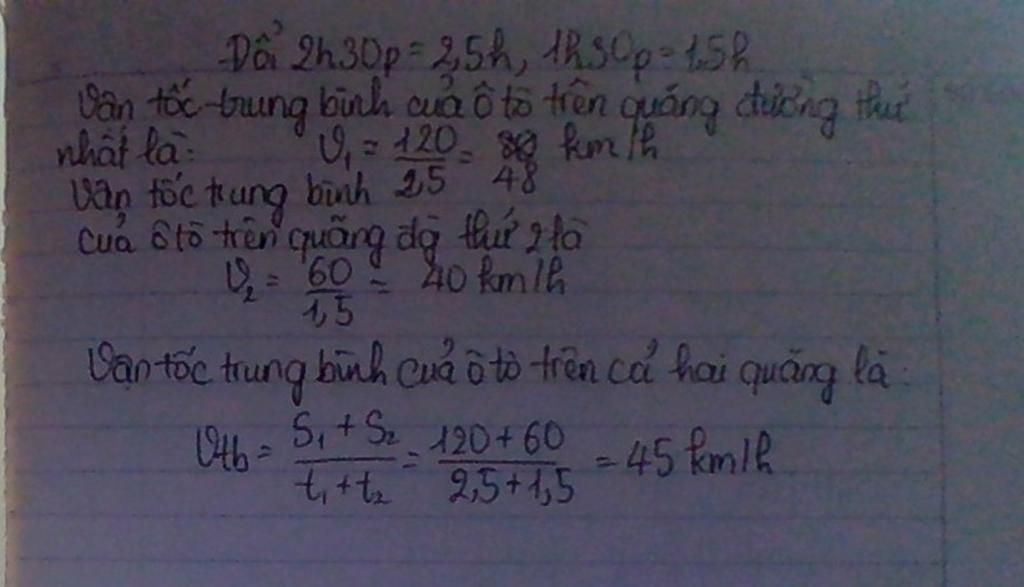 -Đổi 2h30p = 2,5h, 1h30p = 1,5h
Vận tốc trung bình của ô tô trên quãng đường thứ
nhất là: V₁ = 120/2,5 = 48 km/h
Vận tốc trung bình
của ô tô trên quãng đg thứ 2 là
V₂ = 60/1,5 = 40 km/h
Vận tốc trung bình của ô tô trên cả hai quãng là:
Vtb = (S₁ + S₂)/(t₁ + t₂) = (120 + 60)/(2,5 + 1,5) = 45 km/h